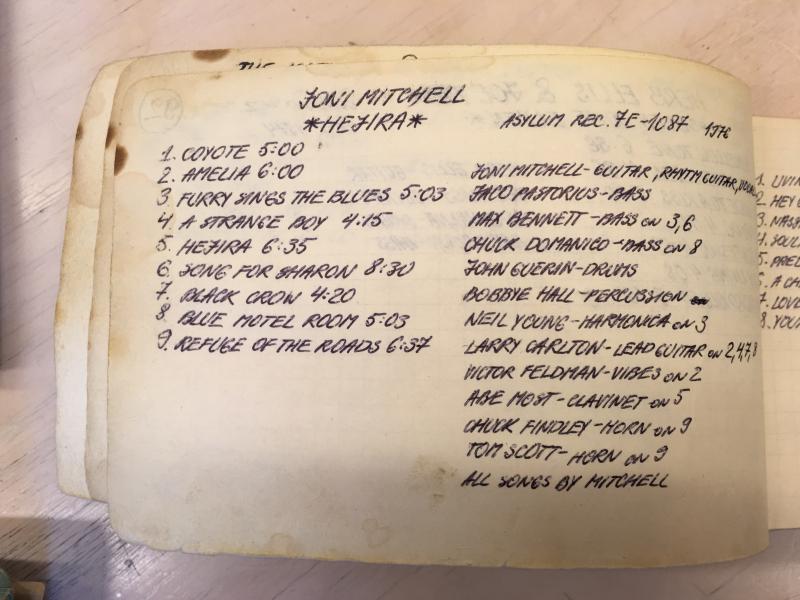 JONI MITCHELL
*HEJIRA*
ASYLUM REC. 7E-1087 1976
1. COYOTE 5:00
2. AMELIA 6:00
3. FURRY SINGS THE BLUES 5:03
4. A STRANGE BOY 4:15
5. HEJIRA 6:35
6. SONG FOR SHARON 8:30
7. BLACK CROW 4:20
8. BLUE MOTEL ROOM 5:03
9. REFUGE OF THE ROADS 6:37
JONI MITCHELL-GUITAR, RHYTM GUITAR,
JACO PASTORIUS-BASS
MAX BENNETT-BASS on 3,6
CHUCK DOMANICO-BASS on 8
JOHN GUERIN-DRUMS
BOBBYE HALL-PERCUSSION
NEIL YOUNG-HARMONICA on 3
LARRY CARLTON-LEAD GUITAR on 2,4,7,8
VICTOR FELDMAN-VIBES on 2
ABE MOST-CLAVINET on 5
CHUCK FINDLEY-HORN on 9
TOM SCOTT-HORN on 9
ALL SONGS BY MITCHELL
1. LIVIN
2. HEY
3. NASS
4. SOUL
5. PREL
6. A CH
7. LOVE
8. YOU